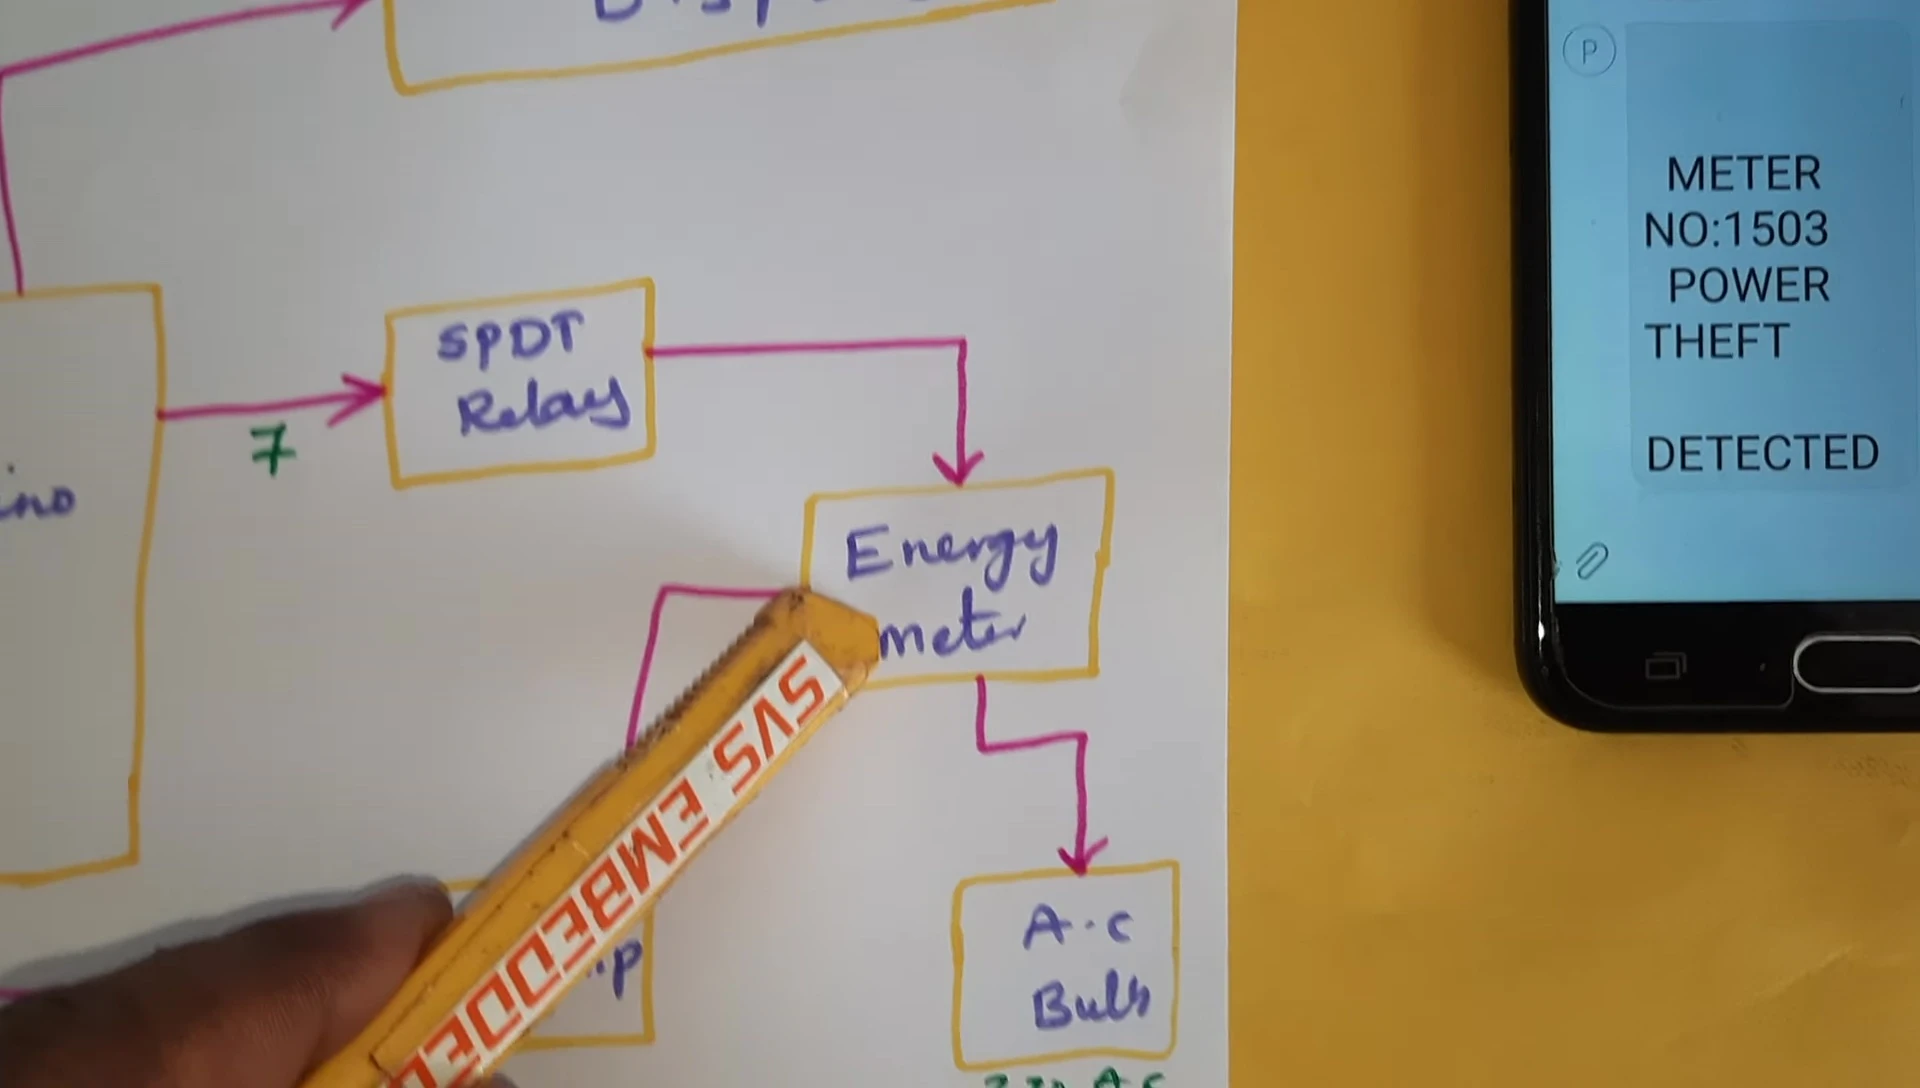 SPDT
Relay
7
Energy
meter
A.c
Bulb
SVS EMBEDDED
P
METER
NO:1503
POWER
THEFT
DETECTED